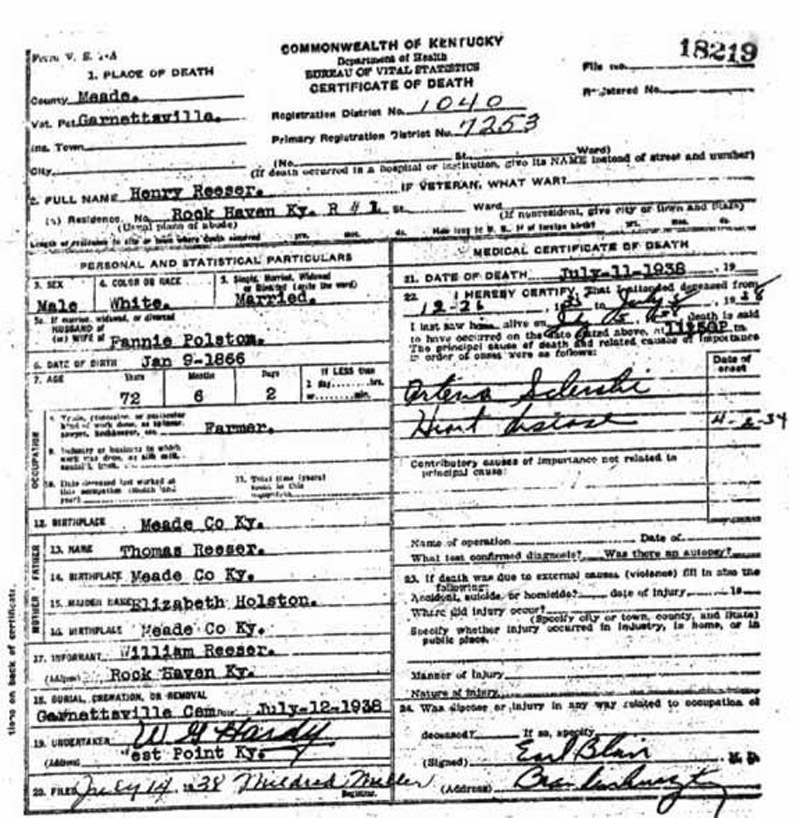 Form V. S. 1-A
COMMONWEALTH OF KENTUCKY
Department of Health
BUREAU OF VITAL STATISTICS
CERTIFICATE OF DEATH
File no. 18219
Registered No.
1. PLACE OF DEATH
County Meade.
Vot. Pct. Garnettsville.
Inc. Town
City
Registration District No. 1040
Primary Registration District No. 7253
(No. St. Ward)
(If death occurred in a hospital or institution, give its NAME instead of street and number)
2. FULL NAME Henry Reeser. IF VETERAN, WHAT WAR?
(a) Residence. No. Rock Haven Ky. R # 1 St. Ward
(Usual place of abode) (If nonresident, give city or town and State)
Length of residence in city or town where death occurred yrs. mos. ds. How long in U. S., if of foreign birth? yrs. mos. ds.
PERSONAL AND STATISTICAL PARTICULARS
3. SEX
Male
4. COLOR OR RACE
White.
5. Single, Married, Widowed
or Divorced (write the word)
Married.
5a. If married, widowed, or divorced
HUSBAND of
(or) WIFE of Fannie Polstom.
6. DATE OF BIRTH Jan 9-1866
7. AGE Years Months Days If LESS than
1 day, hrs.
72 6 2 or min.
OCCUPATION
8. Trade, profession, or particular
kind of work done, as
sawyer, bookkeeper, etc. Farmer.
9. Industry or business in which
work was done, as silk mill,
10. Date deceased last worked at
this occupation (month and
year)
11. Total time (years)
spent in this
occupation
12. BIRTHPLACE Meade Co Ky.
FATHER
13. NAME Thomas Reeser.
14. BIRTHPLACE Meade Co Ky.
MOTHER
15. MAIDEN NAME Elizabeth Holston.
16. BIRTHPLACE Meade Co Ky.
17. INFORMANT William Reeser.
(Address) Rock Haven Ky.
18. BURIAL, CREMATION, OR REMOVAL
Garnettsville Cem Date July-12-1938
19. UNDERTAKER W G Hardy
(Address) West Point Ky.
20. FILED July 14 1938 Mildred Miller
Registrar.
MEDICAL CERTIFICATE OF DEATH
21. DATE OF DEATH July-11-1938 19
22. I HEREBY CERTIFY, That I attended deceased from
12-26 to July 5, 1938
I last saw him alive on July 5 death is said
to have occurred on the date stated above, at 1150P m.
The principal cause of death and related causes of importance
in order of onset were as follows:
Date of
onset
Arterio Sclerosis
Heart disease 4-2-34
Contributory causes of importance not related to
principal cause:
Name of operation Date of
What test confirmed diagnosis? Was there an autopsy?
23. If death was due to external causes (violence) fill in also the
following:
Accident, suicide, or homicide? date of injury 19
Where did injury occur?
(Specify city or town, county, and State)
Specify whether injury occurred in industry, in home, or in
public place.
Manner of Injury
Nature of injury
24. Was disease or injury in any way related to occupation of
deceased? If so, specify
(Signed) Earl Blair M. D.
(Address)
tions on back of certificate.